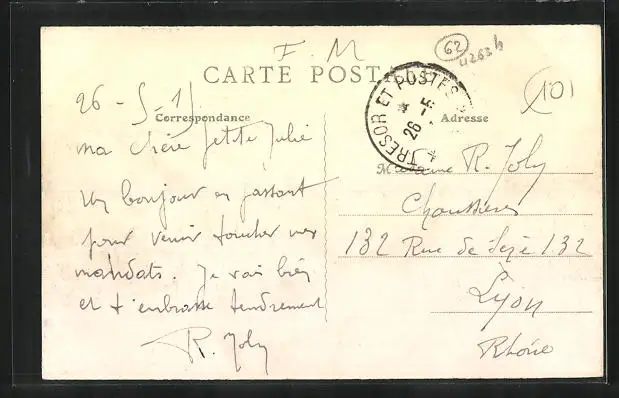 F. M
62
4263h
CARTE POSTALE
(10)
TRESOR ET POSTES
26 - 5
26 - 5 - 15
Correspondance
Adresse
ma chère petite Julie
Un bonjour en passant
pour venir toucher mes
mandats. Je vais bien
et t'embrasse tendrement
R. Joly
Madame R. Joly
Chaussures
132 Rue de Sèze 132
Lyon
Rhône